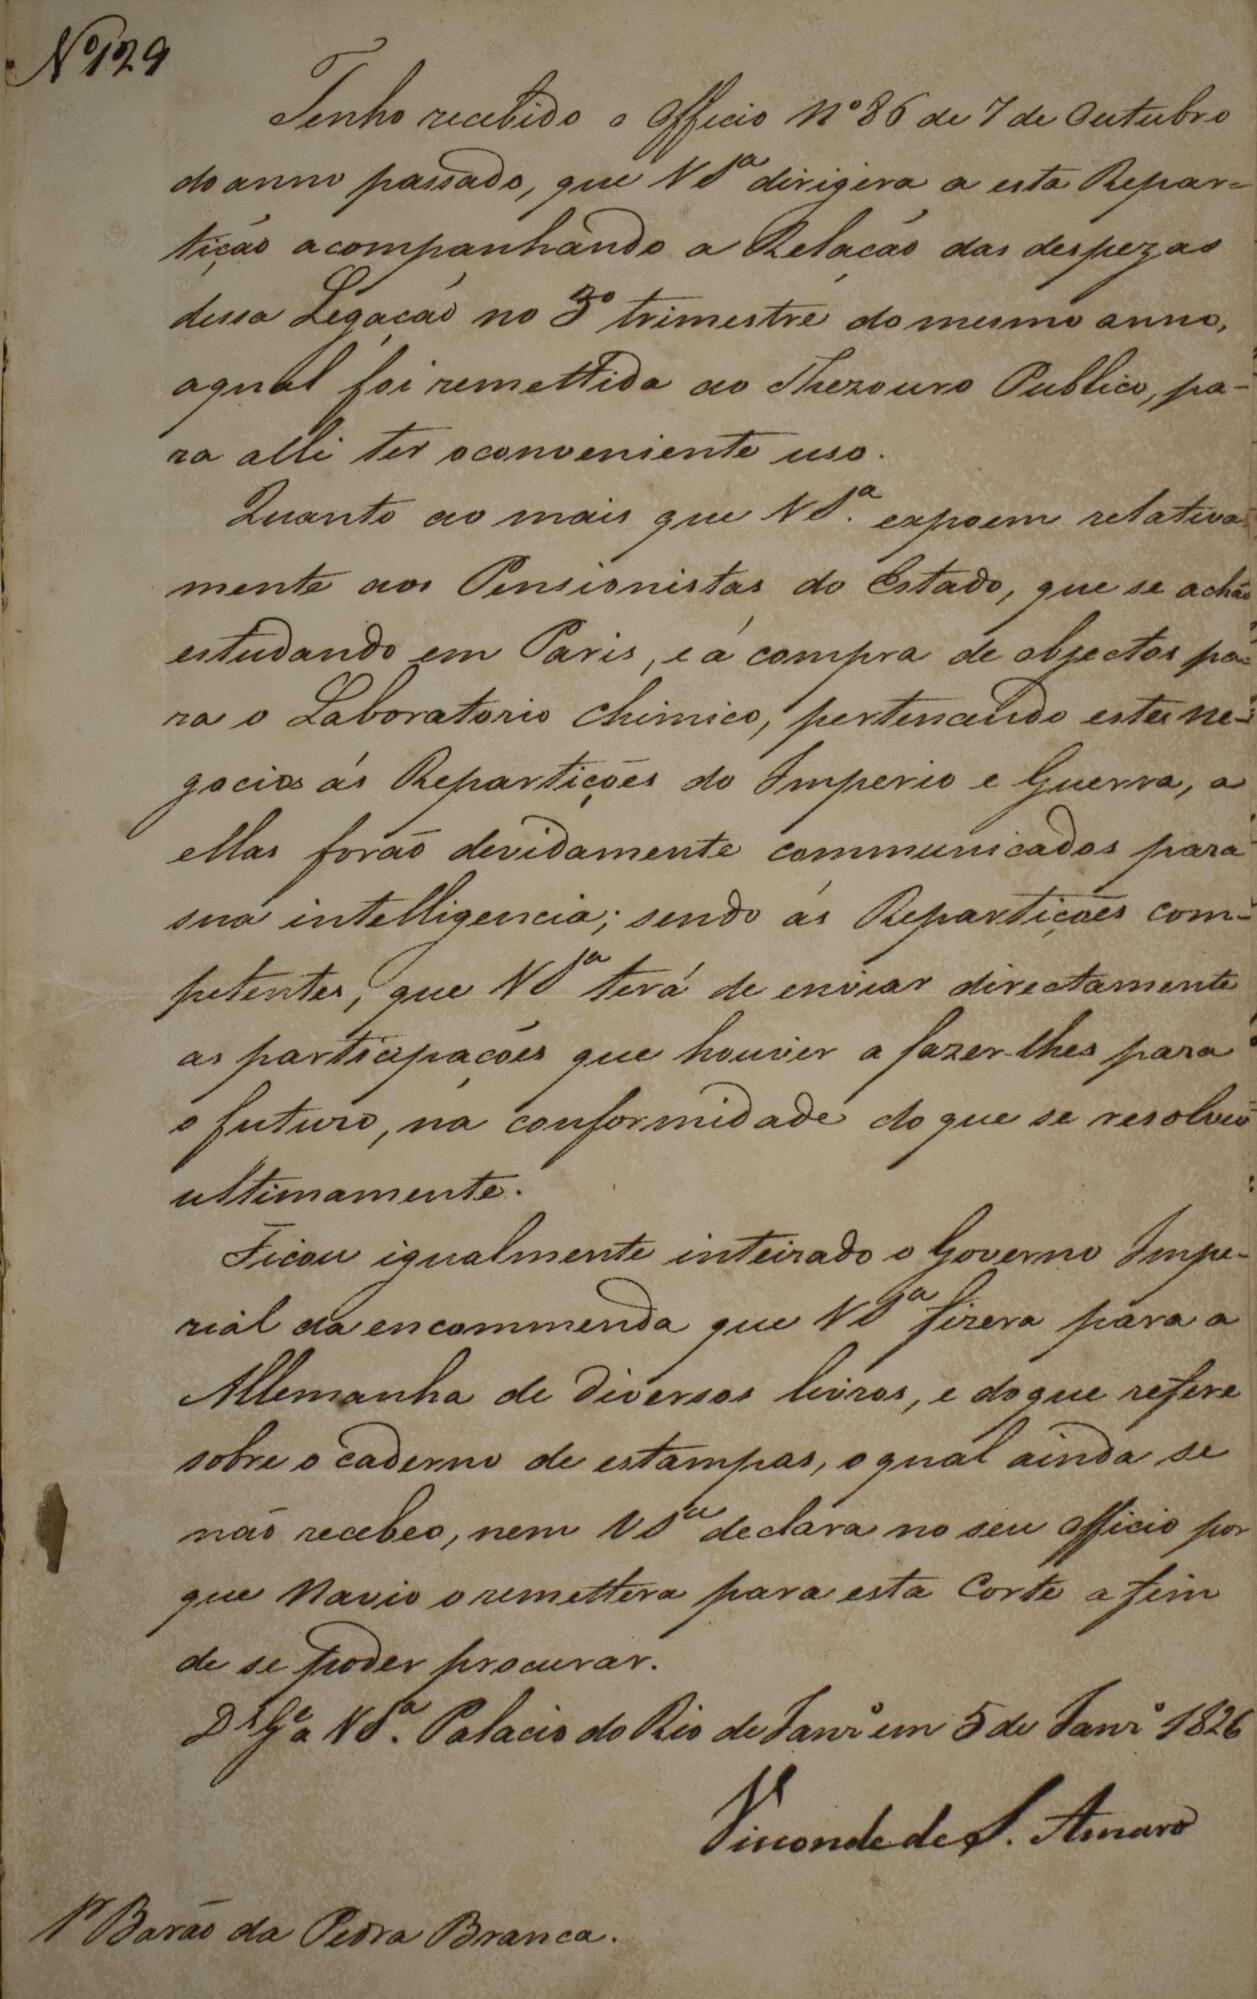 Nº 129
Tenho recebido o Officio Nº 86 de 7 de Outubro
do anno passado, que V Sª dirigira a esta Repar=
tição acompanhando a Relação das despezas
dessa Legação no 3º trimestre do mesmo anno,
aqual foi remettida ao Thezouro Publico, pa-
ra alli ter oconveniente uso.
Quanto ao mais que V Sª. expoem relativa
mente aos Pensionistas do Estado, que se achão
estudando em Paris, e á compra de objectos pa=
ra o Laboratorio Chimico, pertencendo estes ne-
gocios ás Repartições do Imperio e Guerra, a
ellas forão devidamente communicados para
sua intelligencia; sendo ás Repartições com-
petentes, que V Sª terá de enviar directamente
as participações que houver a fazer-lhes para
o futuro, na conformidade do que se resolveu
ultimamente.
Ficou igualmente inteirado o Governo Impe-
rial da encommenda que V Sª fizera para a
Allemanha de diversos livros, e do que refere
sobre o caderno de estampas, o qual ainda se
não recebeo, nem V Sª declara no seu Officio por
que Navio o remettera para esta Corte a fim
de se poder procurar.
Ds Ge a V Sª. Palacio do Rio de Janrº em 5 de Janrº 1826
Visconde de S. Amaro
Sr Barão da Pedra Branca.